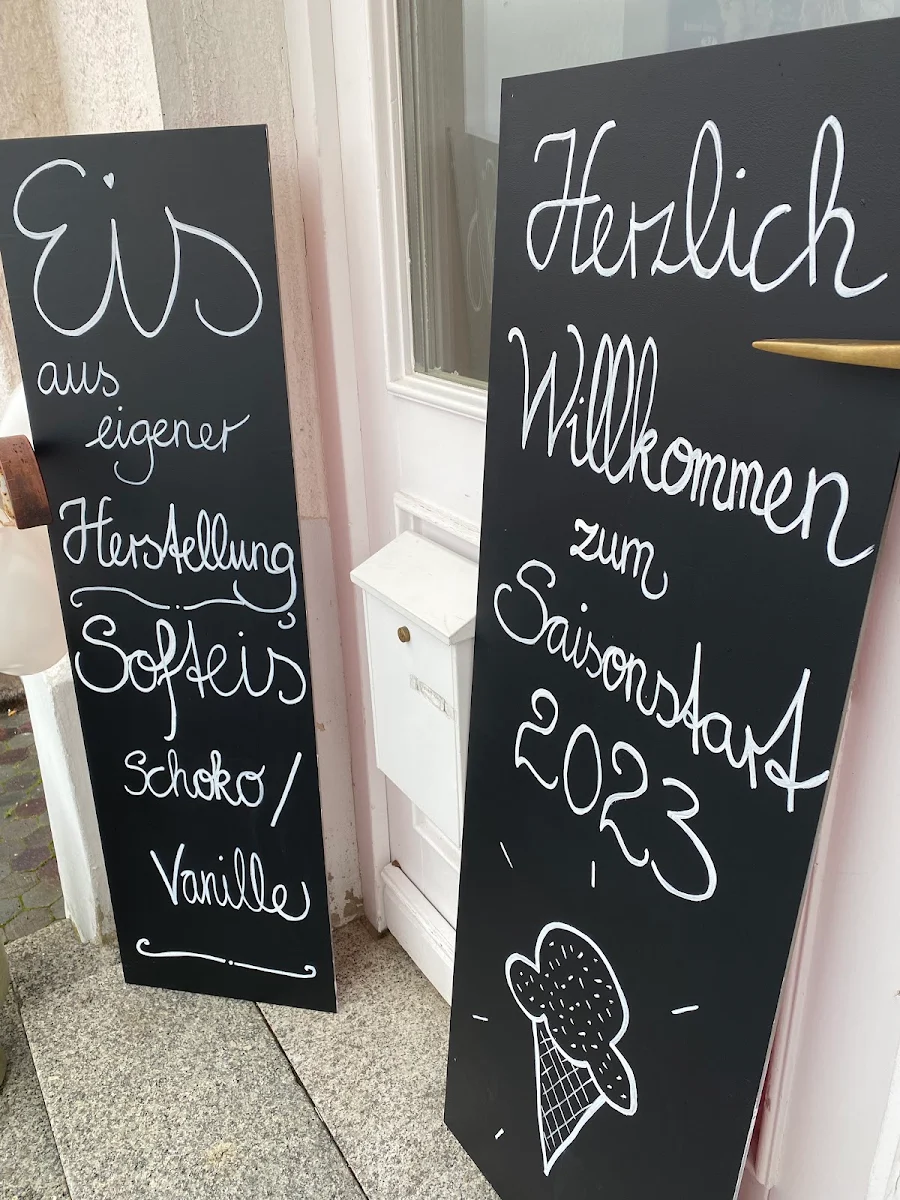 Eis
aus
eigener
Herstellung
Softeis
Schoko/
Vanille
Herzlich
Willkommen
zum
Saisonstart
2023